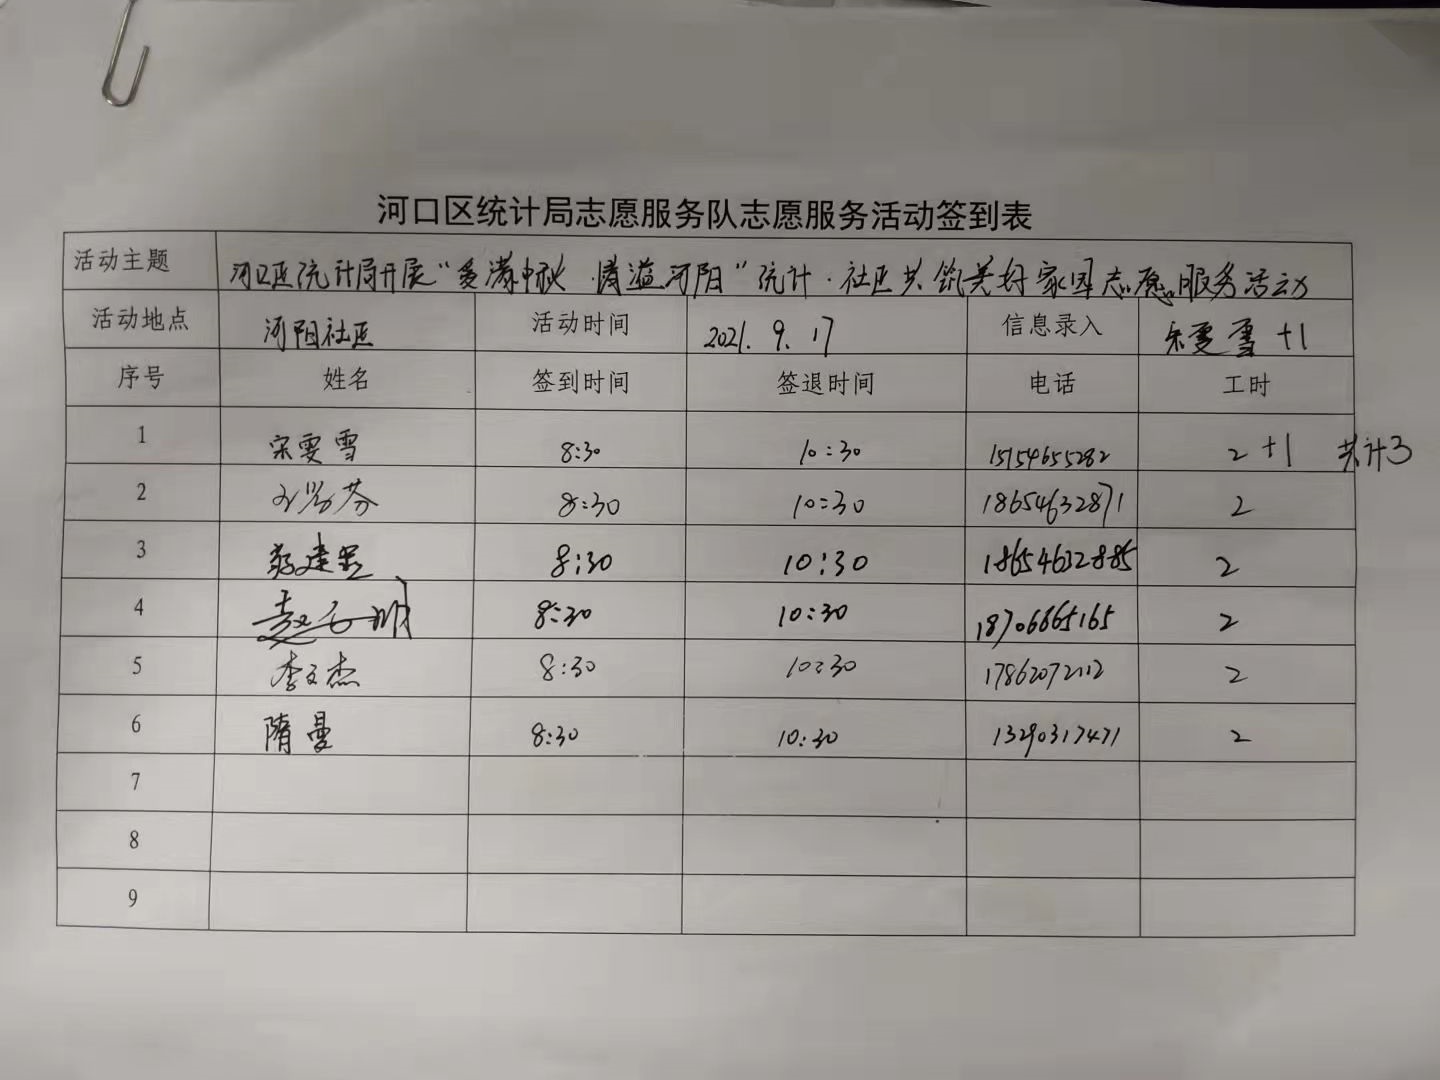 河口区统计局志愿服务队志愿服务活动签到表
活动主题 河口区统计局开展“爱满中秋 情溢河阳”统计·社区共筑美好家园志愿服务活动
活动地点 河阳社区 活动时间 2021.9.17 信息录入 宋雯雪+1
序号 姓名 签到时间 签退时间 电话 工时
1 宋雯雪 8:30 10:30 15154655282 2+1 共计3
2 8:30 10:30 18654632871 2
3 建 8:30 10:30 18654632885 2
4 赵 明 8:30 10:30 18706665165 2
5 李文杰 8:30 10:30 17862072112 2
6 隋曼 8:30 10:30 13290317471 2
7
8
9